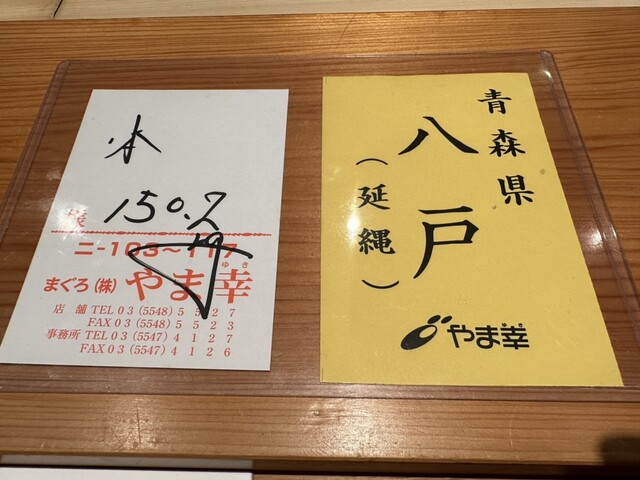 水
150.2
様
ニ-103~117
まぐろ(株)やま幸
ゆき
店舗 TEL 03 (5548) 5527
FAX 03 (5548) 5523
事務所 TEL 03 (5547) 4127
FAX 03 (5547) 4126
青森県
八戸
(延縄)
やま幸